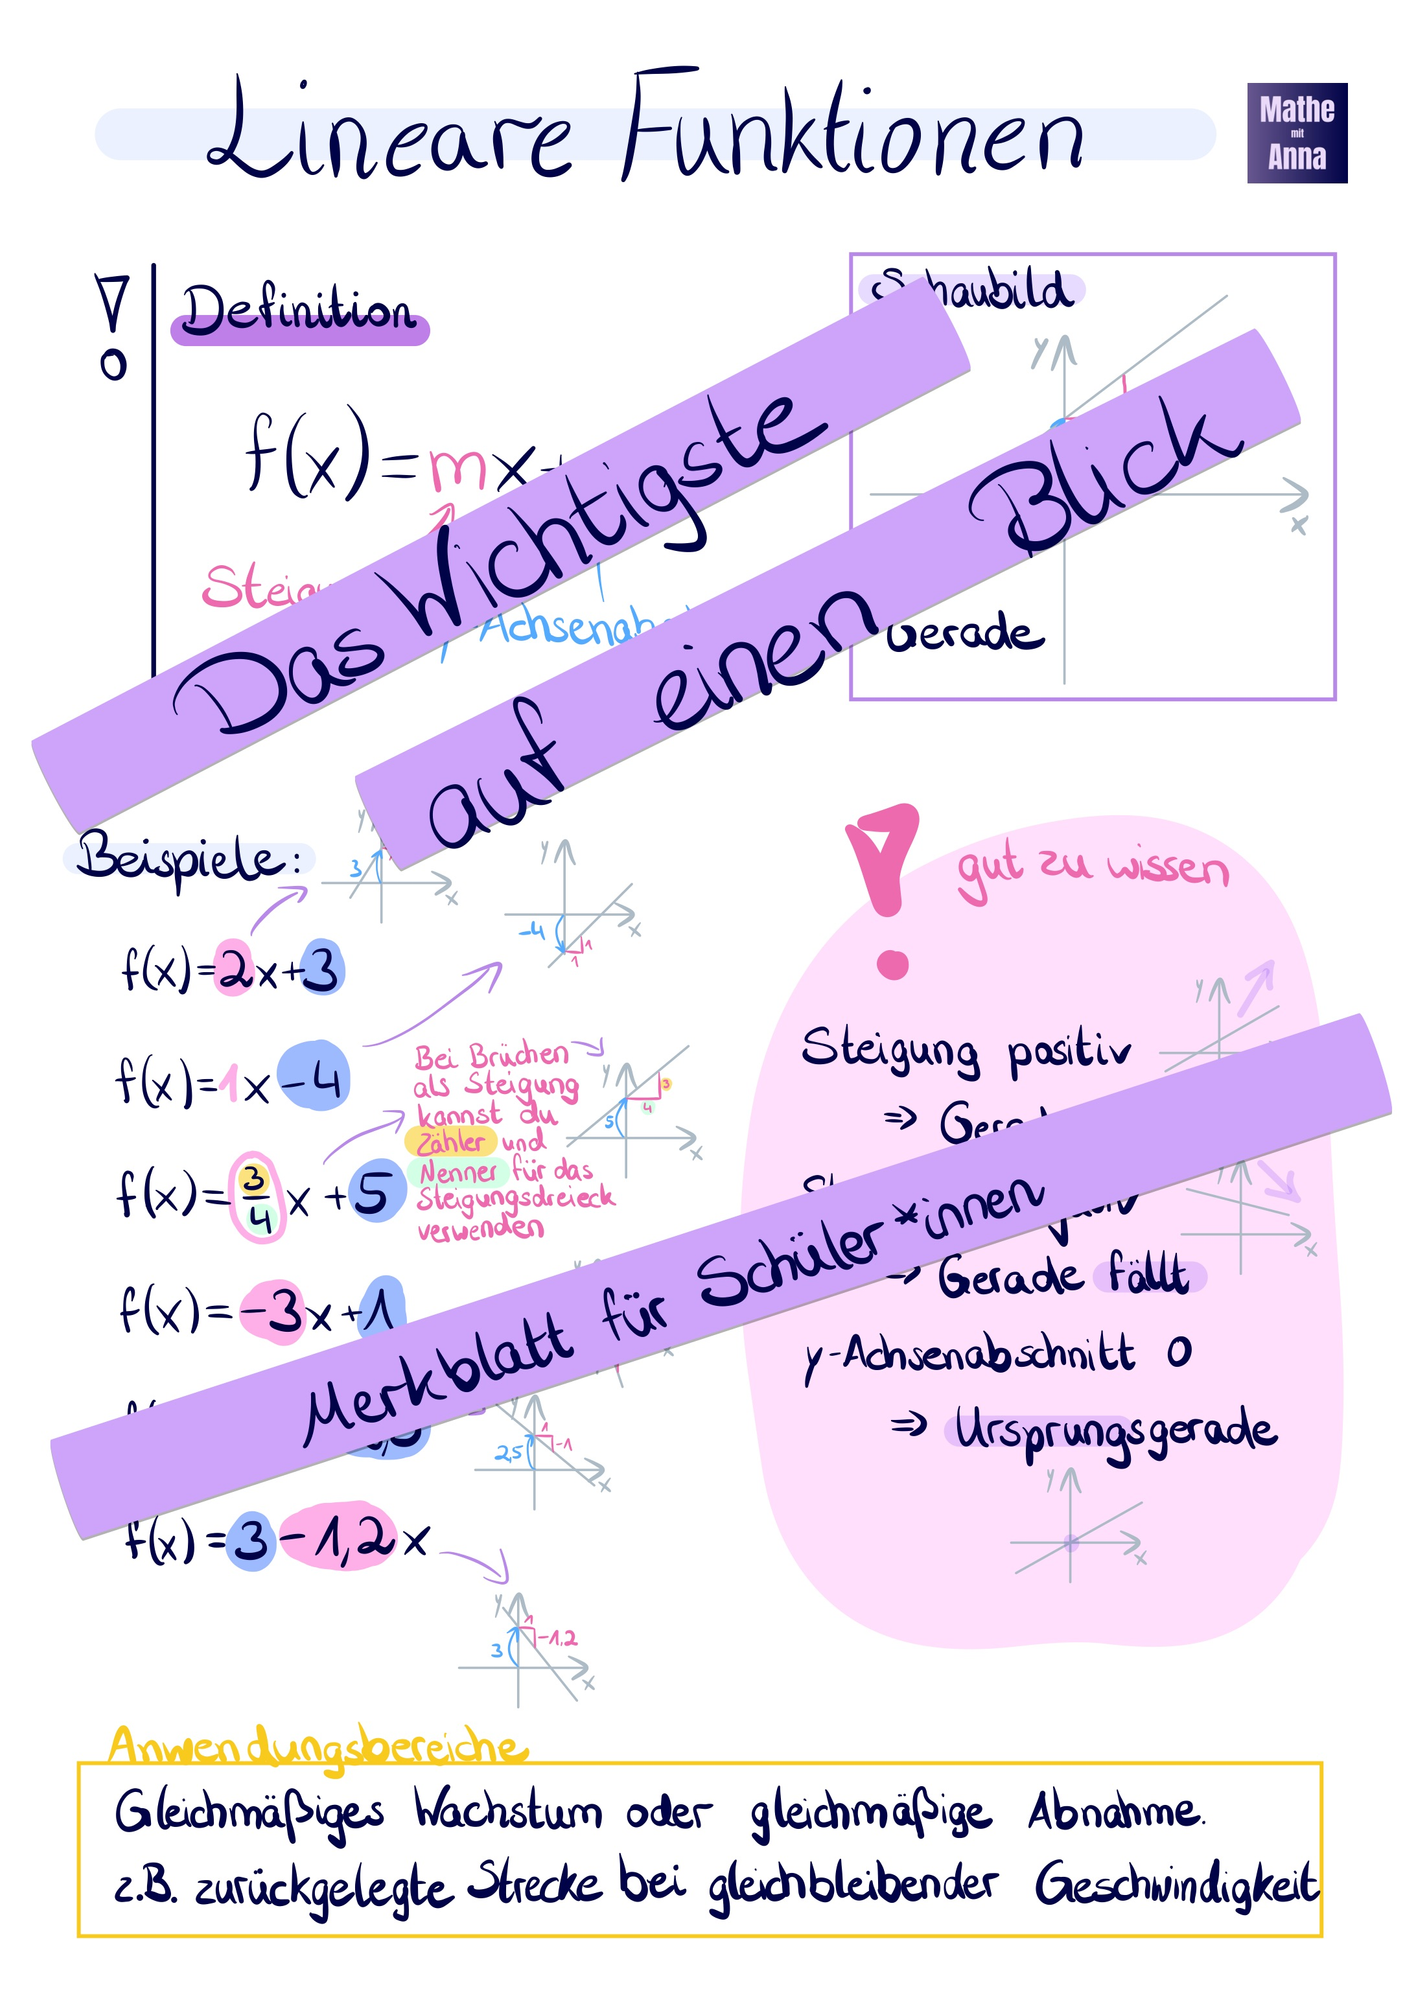 Lineare Funktionen
Mathe
mit
Anna
Definition
f(x)=mx+
Das Wichtigste
auf einen Blick
Schaubild
y
x
Gerade
Beispiele:
y
3
x
f(x)=2x+3
y
-4
1
1
x
f(x)=1x-4
Bei Brüchen
als Steigung
kannst du
Zähler und
Nenner für das
Steigungsdreieck
verwenden
y
3
4
5
x
f(x)=3/4x+5
f(x)=-3x+1
Merkblatt für Schüler*innen
y
1
-1
2,5
x
f(x)=3-1,2x
y
1
-1,2
3
x
gut zu wissen
Steigung positiv
y
⇒
⇒ Gerade fällt
x
y-Achsenabschnitt 0
⇒ Ursprungsgerade
y
x
Anwendungsbereiche
Gleichmäßiges Wachstum oder gleichmäßige Abnahme.
z.B. zurückgelegte Strecke bei gleichbleibender Geschwindigkeit